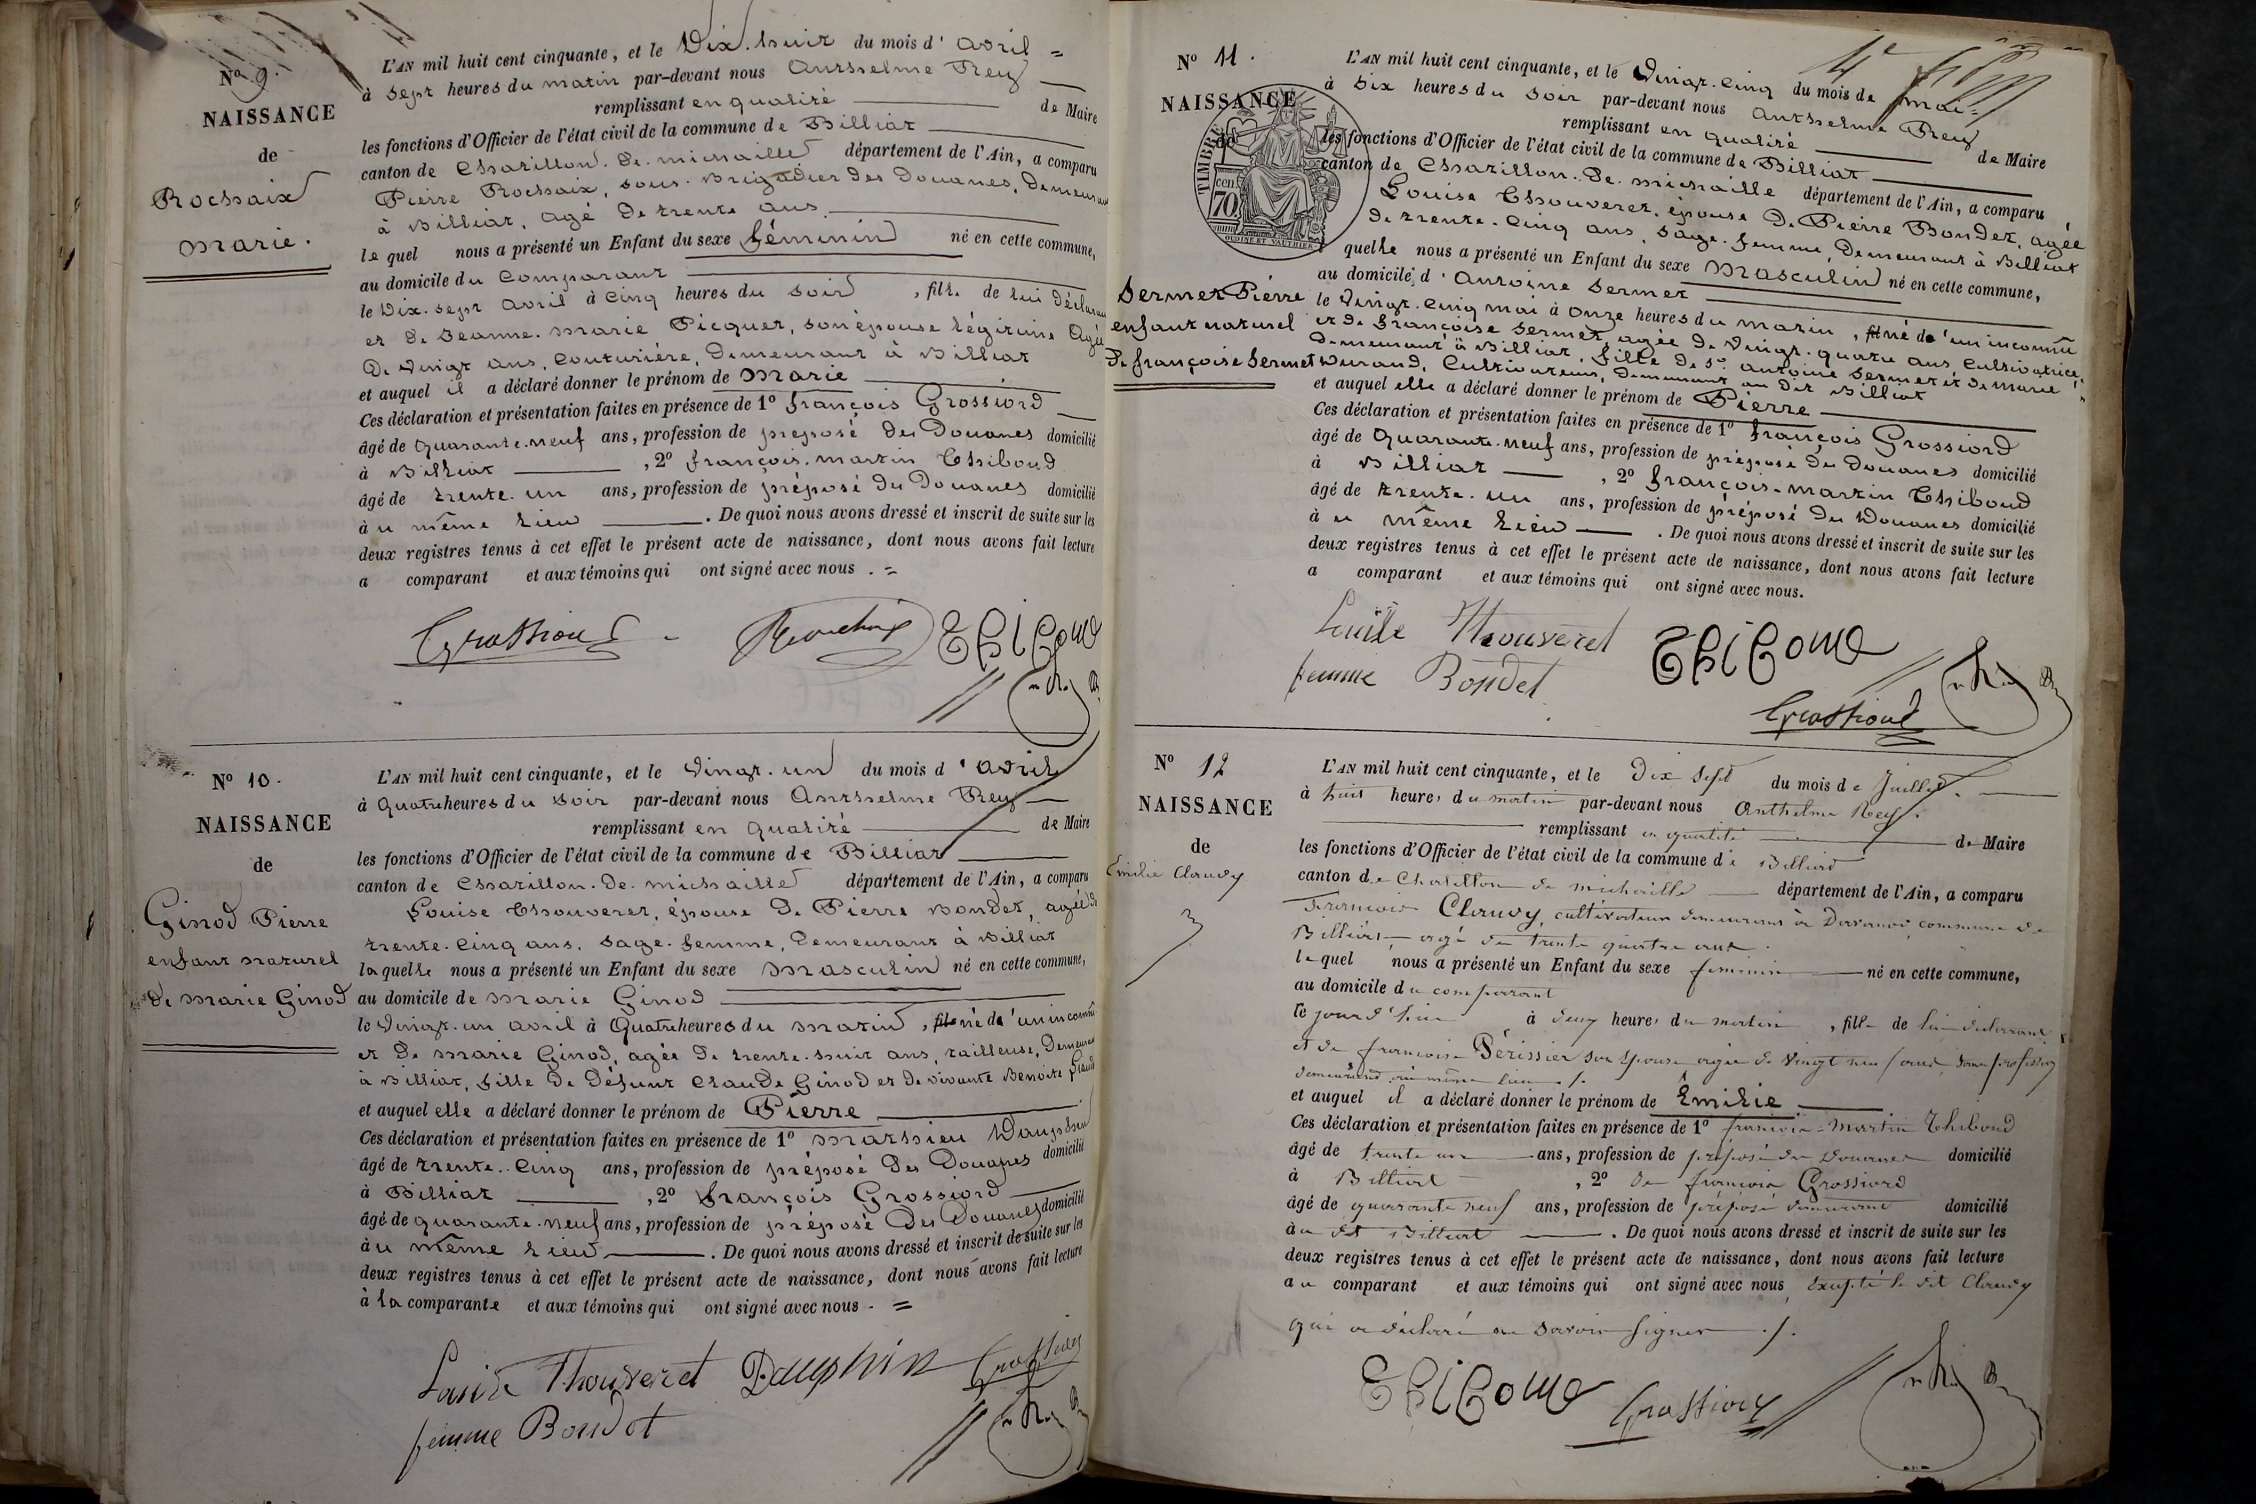 Nº 9.
NAISSANCE
de
Rochaix
marie.
L'AN mil huit cent cinquante, et le Dix-huit du mois d'avril =
à sept heures du matin par-devant nous Anthelme Rey
remplissant en qualité de Maire
les fonctions d'Officier de l'état civil de la commune de Billiat
canton de Chatillon-de-michaille département de l'Ain, a comparu
Pierre Rochaix, sous-Brigadier des Douanes, Demeurant
à Billiat, agé de trente ans
lequel nous a présenté un Enfant du sexe féminin né en cette commune,
au domicile du comparant
le Dix-sept avril à cinq heures du soir, fille de lui déclarant
et de Jeanne-marie Picquet, son épouse légitime Agée
De vingt ans, couturière, Demeurant à Billiat
et auquel il a déclaré donner le prénom de Marie
Ces déclaration et présentation faites en présence de 1º françois Grossiord
âgé de quarante-neuf ans, profession de préposé des Douanes domicilié
à Billiat, 2º françois-martin Thiboud
âgé de trente-un ans, profession de préposé des Douanes domicilié
au même lieu. De quoi nous avons dressé et inscrit de suite sur les
deux registres tenus à cet effet le présent acte de naissance, dont nous avons fait lecture
a comparant et aux témoins qui ont signé avec nous. =
Grossiord Rouchaix Thiboud
Nº 10.
NAISSANCE
de
Ginod Pierre
enfant naturel
de marie Ginod
L'AN mil huit cent cinquante, et le vingt-un du mois d'avril
à quatre heures du soir par-devant nous Anthelme Rey
remplissant en qualité de Maire
les fonctions d'Officier de l'état civil de la commune de Billiat
canton de Chatillon-de-michaille département de l'Ain, a comparu
Louise Thouveret, épouse de Pierre Bondet, agée de
trente-cinq ans, sage-femme, demeurant à Billiat
laquelle nous a présenté un Enfant du sexe masculin né en cette commune,
au domicile de marie Ginod
le vingt-un avril à quatre heures du matin, né d'un inconnu
et de marie Ginod, agée de trente-huit ans, tailleuse, Demeurant
à Billiat, fille de défunt Claude Ginod et de vivante Benoite
et auquel elle a déclaré donner le prénom de Pierre
Ces déclaration et présentation faites en présence de 1º mathieu Dauphin
âgé de trente-cinq ans, profession de préposé des Douanes domicilié
à Billiat, 2º françois Grossiord
âgé de quarante-neuf ans, profession de préposé des Douanes domicilié
au même lieu. De quoi nous avons dressé et inscrit de suite sur les
deux registres tenus à cet effet le présent acte de naissance, dont nous avons fait lecture
à la comparante et aux témoins qui ont signé avec nous. =
Louise Thouveret Dauphin Grossiord
femme Bondet
Nº 11.
NAISSANCE
de
Sermet Pierre
enfant naturel
de françoise Sermet
TIMBRE
cen.
70
OUDINE ET VAUTHIER
L'AN mil huit cent cinquante, et le vingt-cinq du mois de mai =
à six heures du soir par-devant nous Anthelme Rey
remplissant en qualité de Maire
les fonctions d'Officier de l'état civil de la commune de Billiat
canton de Chatillon-de-michaille département de l'Ain, a comparu
Louise Thouveret, épouse de Pierre Bondet, agée
de trente-cinq ans, sage-femme, Demeurant à Billiat
quelle nous a présenté un Enfant du sexe masculin né en cette commune,
au domicile d'Antoine Sermet
le vingt-cinq mai à onze heures du matin, né d'un inconnu
et de françoise Sermet, agée de vingt-quatre ans, cultivatrice,
demeurant à Billiat, fille de Sr antoine Sermet et de marie
Durand, Cultivateurs, demeurant au dit Billiat
et auquel elle a déclaré donner le prénom de Pierre
Ces déclaration et présentation faites en présence de 1º françois Grossiord
âgé de quarante-neuf ans, profession de préposé des Douanes domicilié
à Billiat, 2º françois-martin Thiboud
âgé de trente-un ans, profession de préposé des Douanes domicilié
au même lieu. De quoi nous avons dressé et inscrit de suite sur les
deux registres tenus à cet effet le présent acte de naissance, dont nous avons fait lecture
a comparant et aux témoins qui ont signé avec nous.
Louise Thouveret Thiboud
femme Bondet Grossiord
Nº 12
NAISSANCE
de
Emilie Claudy
L'AN mil huit cent cinquante, et le Dix sept du mois de Juillet
à huit heures du matin par-devant nous Anthelme Rey
remplissant en qualité de Maire
les fonctions d'Officier de l'état civil de la commune de Billiat
canton de Chatillon de michaille département de l'Ain, a comparu
François Claudy, cultivateur demeurant à commune de
Billiat, agé de trente quatre ans.
lequel nous a présenté un Enfant du sexe feminin né en cette commune,
au domicile du comparant
le jour d'hui à deux heures du matin, fille de lui déclarant
et de françoise Périssier son épouse agée de vingt neuf ans, sans profession
demeurant au même lieu
et auquel il a déclaré donner le prénom de Emilie
Ces déclaration et présentation faites en présence de 1º françois-Martin Thiboud
âgé de trente un ans, profession de préposé des Douanes domicilié
à Billiat, 2º de françois Grossiord
âgé de quarante neuf ans, profession de préposé demeurant domicilié
au dit Billiat. De quoi nous avons dressé et inscrit de suite sur les
deux registres tenus à cet effet le présent acte de naissance, dont nous avons fait lecture
au comparant et aux témoins qui ont signé avec nous excepté le dit Claudy
qui a déclaré ne savoir signer
Thiboud Grossiord